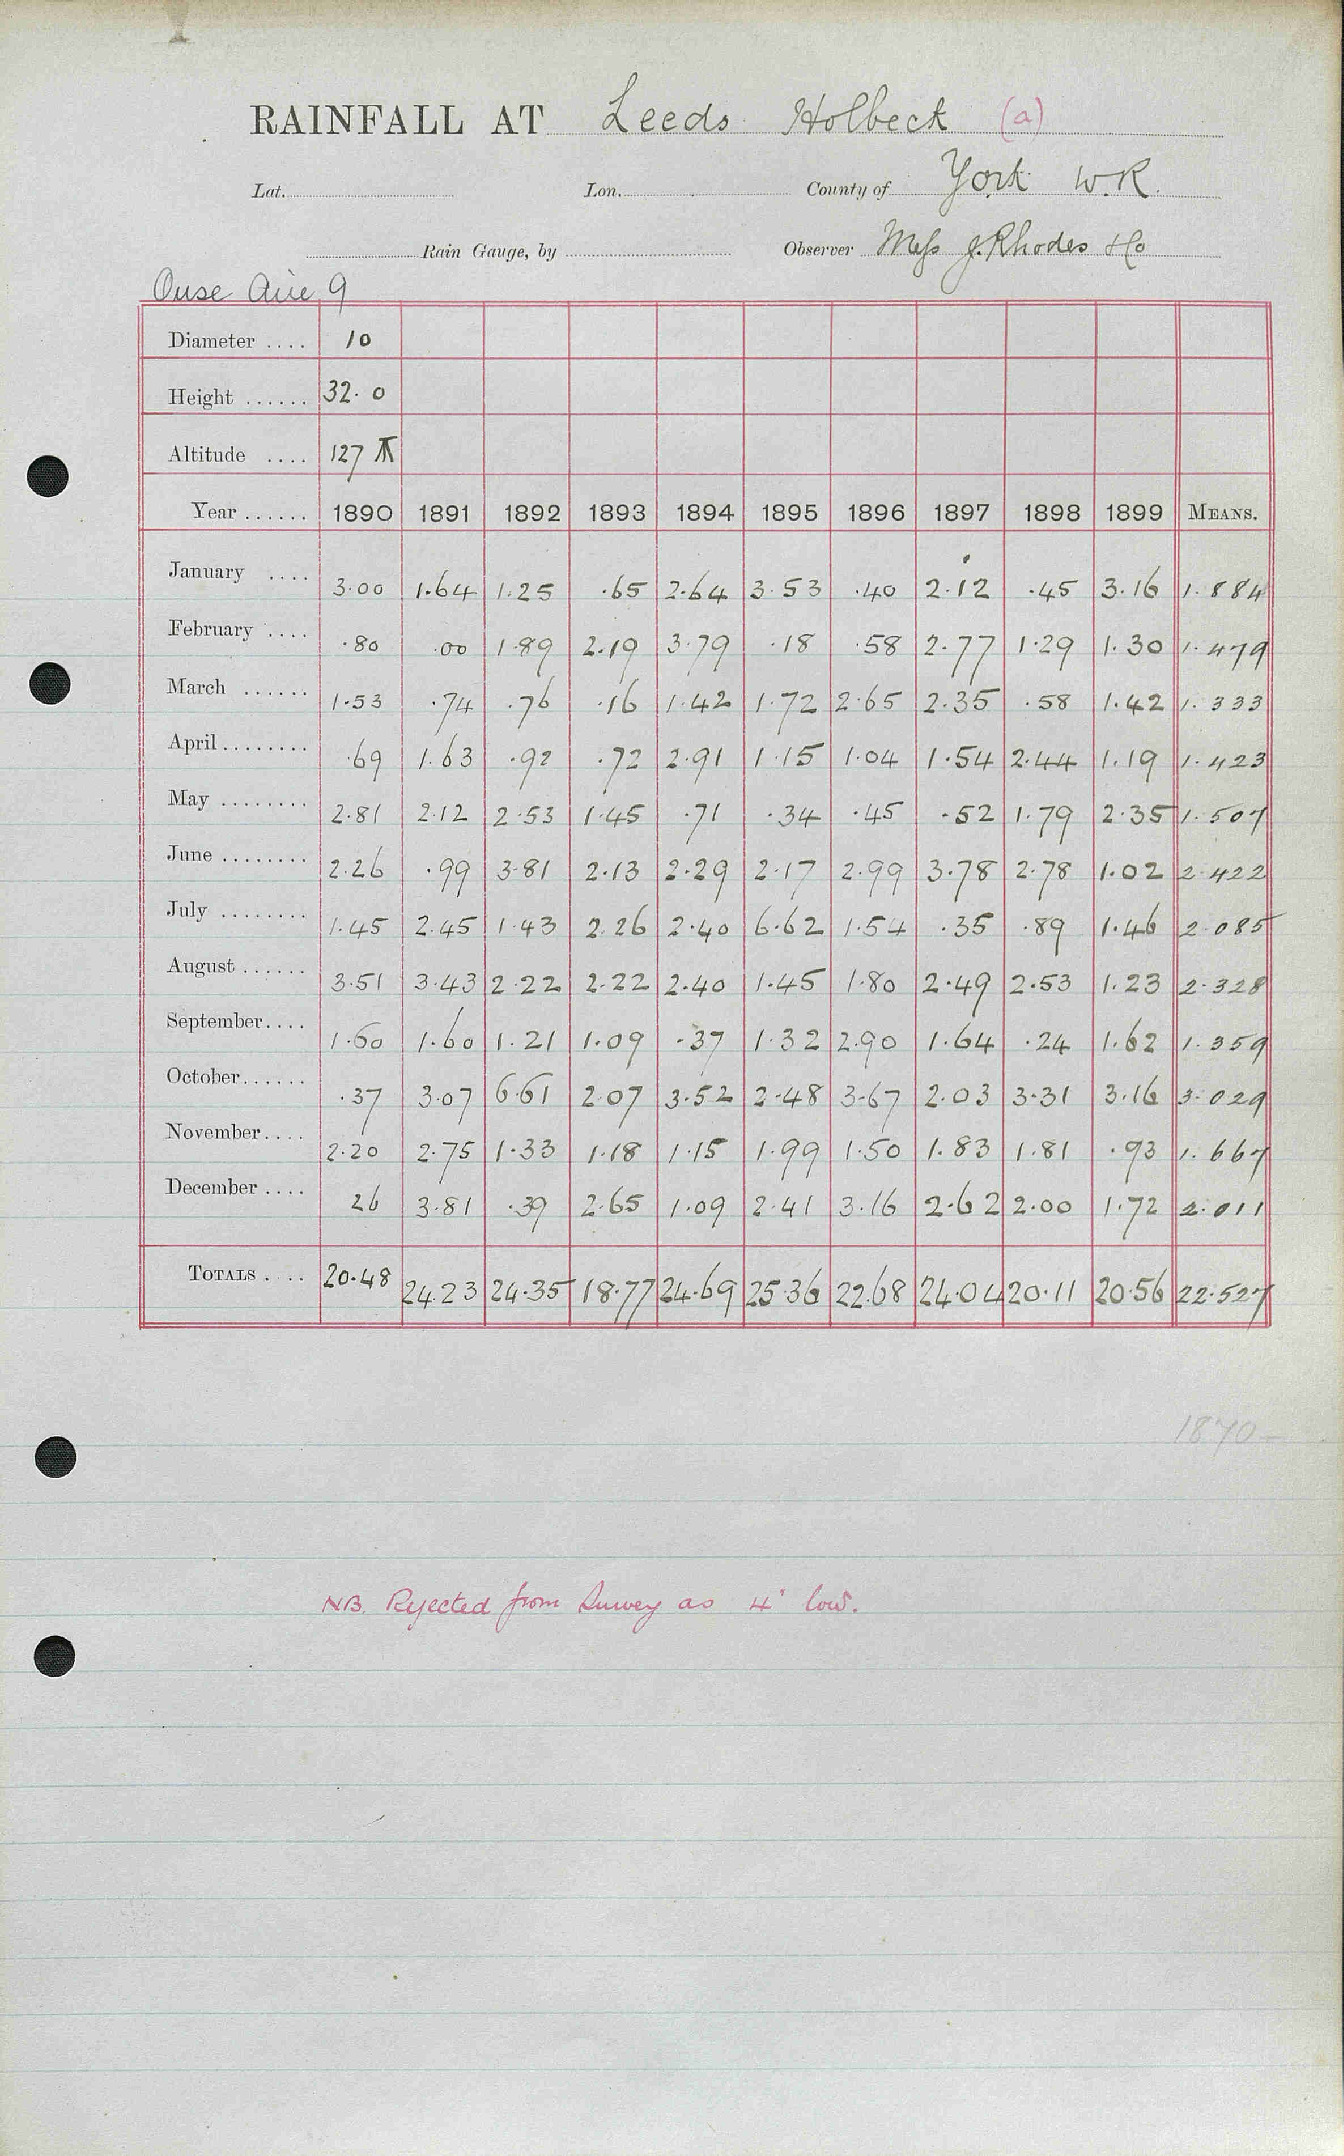 RAINFALL AT Leeds Holbeck (a)
Lat. Lon. County of York W.R.
Rain Gauge, by Observer Mess J. Rhodes & Co
Ouse Aire 9
Diameter .... 10
Height ...... 32. 0
Altitude .... 127
Year ...... 1890 1891 1892 1893 1894 1895 1896 1897 1898 1899 MEANS.
January .... 3.00 1.64 1.25 .65 2.64 3.53 .40 2.12 .45 3.16 1.884
February .... .80 .00 1.89 2.19 3.79 .18 .58 2.77 1.29 1.30 1.479
March ...... 1.53 .74 .76 .16 1.42 1.72 2.65 2.35 .58 1.42 1.333
April ........ .69 1.63 .92 .72 2.91 1.15 1.04 1.54 2.44 1.19 1.423
May ........ 2.81 2.12 2.53 1.45 .71 .34 .45 .52 1.79 2.35 1.507
June ........ 2.26 .99 3.81 2.13 2.29 2.17 2.99 3.78 2.78 1.02 2.422
July ........ 1.45 2.45 1.43 2.26 2.40 6.62 1.54 .35 .89 1.46 2.085
August ...... 3.51 3.43 2.22 2.22 2.40 1.45 1.80 2.49 2.53 1.23 2.328
September .... 1.60 1.60 1.21 1.09 .37 1.32 2.90 1.64 .24 1.62 1.359
October ...... .37 3.07 6.61 2.07 3.52 2.48 3.67 2.03 3.31 3.16 3.029
November .... 2.20 2.75 1.33 1.18 1.15 1.99 1.50 1.83 1.81 .93 1.667
December .... 26 3.81 .39 2.65 1.09 2.41 3.16 2.62 2.00 1.72 2.011
TOTALS .... 20.48 24.23 24.35 18.77 24.69 25.36 22.68 24.04 20.11 20.56 22.527
1870-
NB. Rejected from Survey as 4" low.